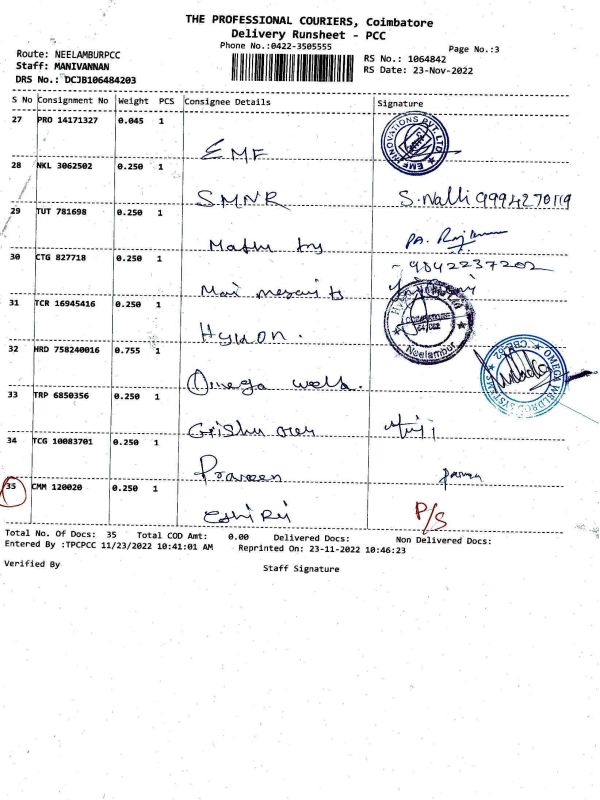 THE PROFESSIONAL COURIERS, Coimbatore
Delivery Runsheet - PCC
Phone No.:0422-3505555
Page No.:3
Route: NEELAMBURPCC
Staff: MANIVANNAN
DRS No.: DCJB106484203
RS No.: 1064842
RS Date: 23-Nov-2022
S No Consignment No Weight PCS Consignee Details Signature
27 PRO 14171327 0.045 1
EMF
EMF INNOVATIONS PVT. LTD.
28 NKL 3062502 0.250 1
SMNR S. Nalli 9994270119
29 TUT 781698 0.250 1
30 CTG 827718 0.250 1
9842237202
31 TCR 16945416 0.250 1
Hykon.
COIMBATORE
Neelambur
32 HRD 758240016 0.755 1
Omega weld.
33 TRP 6850356 0.250 1
34 TCG 10083701 0.250 1
Praveen
35 CMM 120020 0.250 1
P/S
Total No. Of Docs: 35 Total COD Amt: 0.00 Delivered Docs: Non Delivered Docs:
Entered By :TPCPCC 11/23/2022 10:41:01 AM Reprinted On: 23-11-2022 10:46:23
Verified By Staff Signature